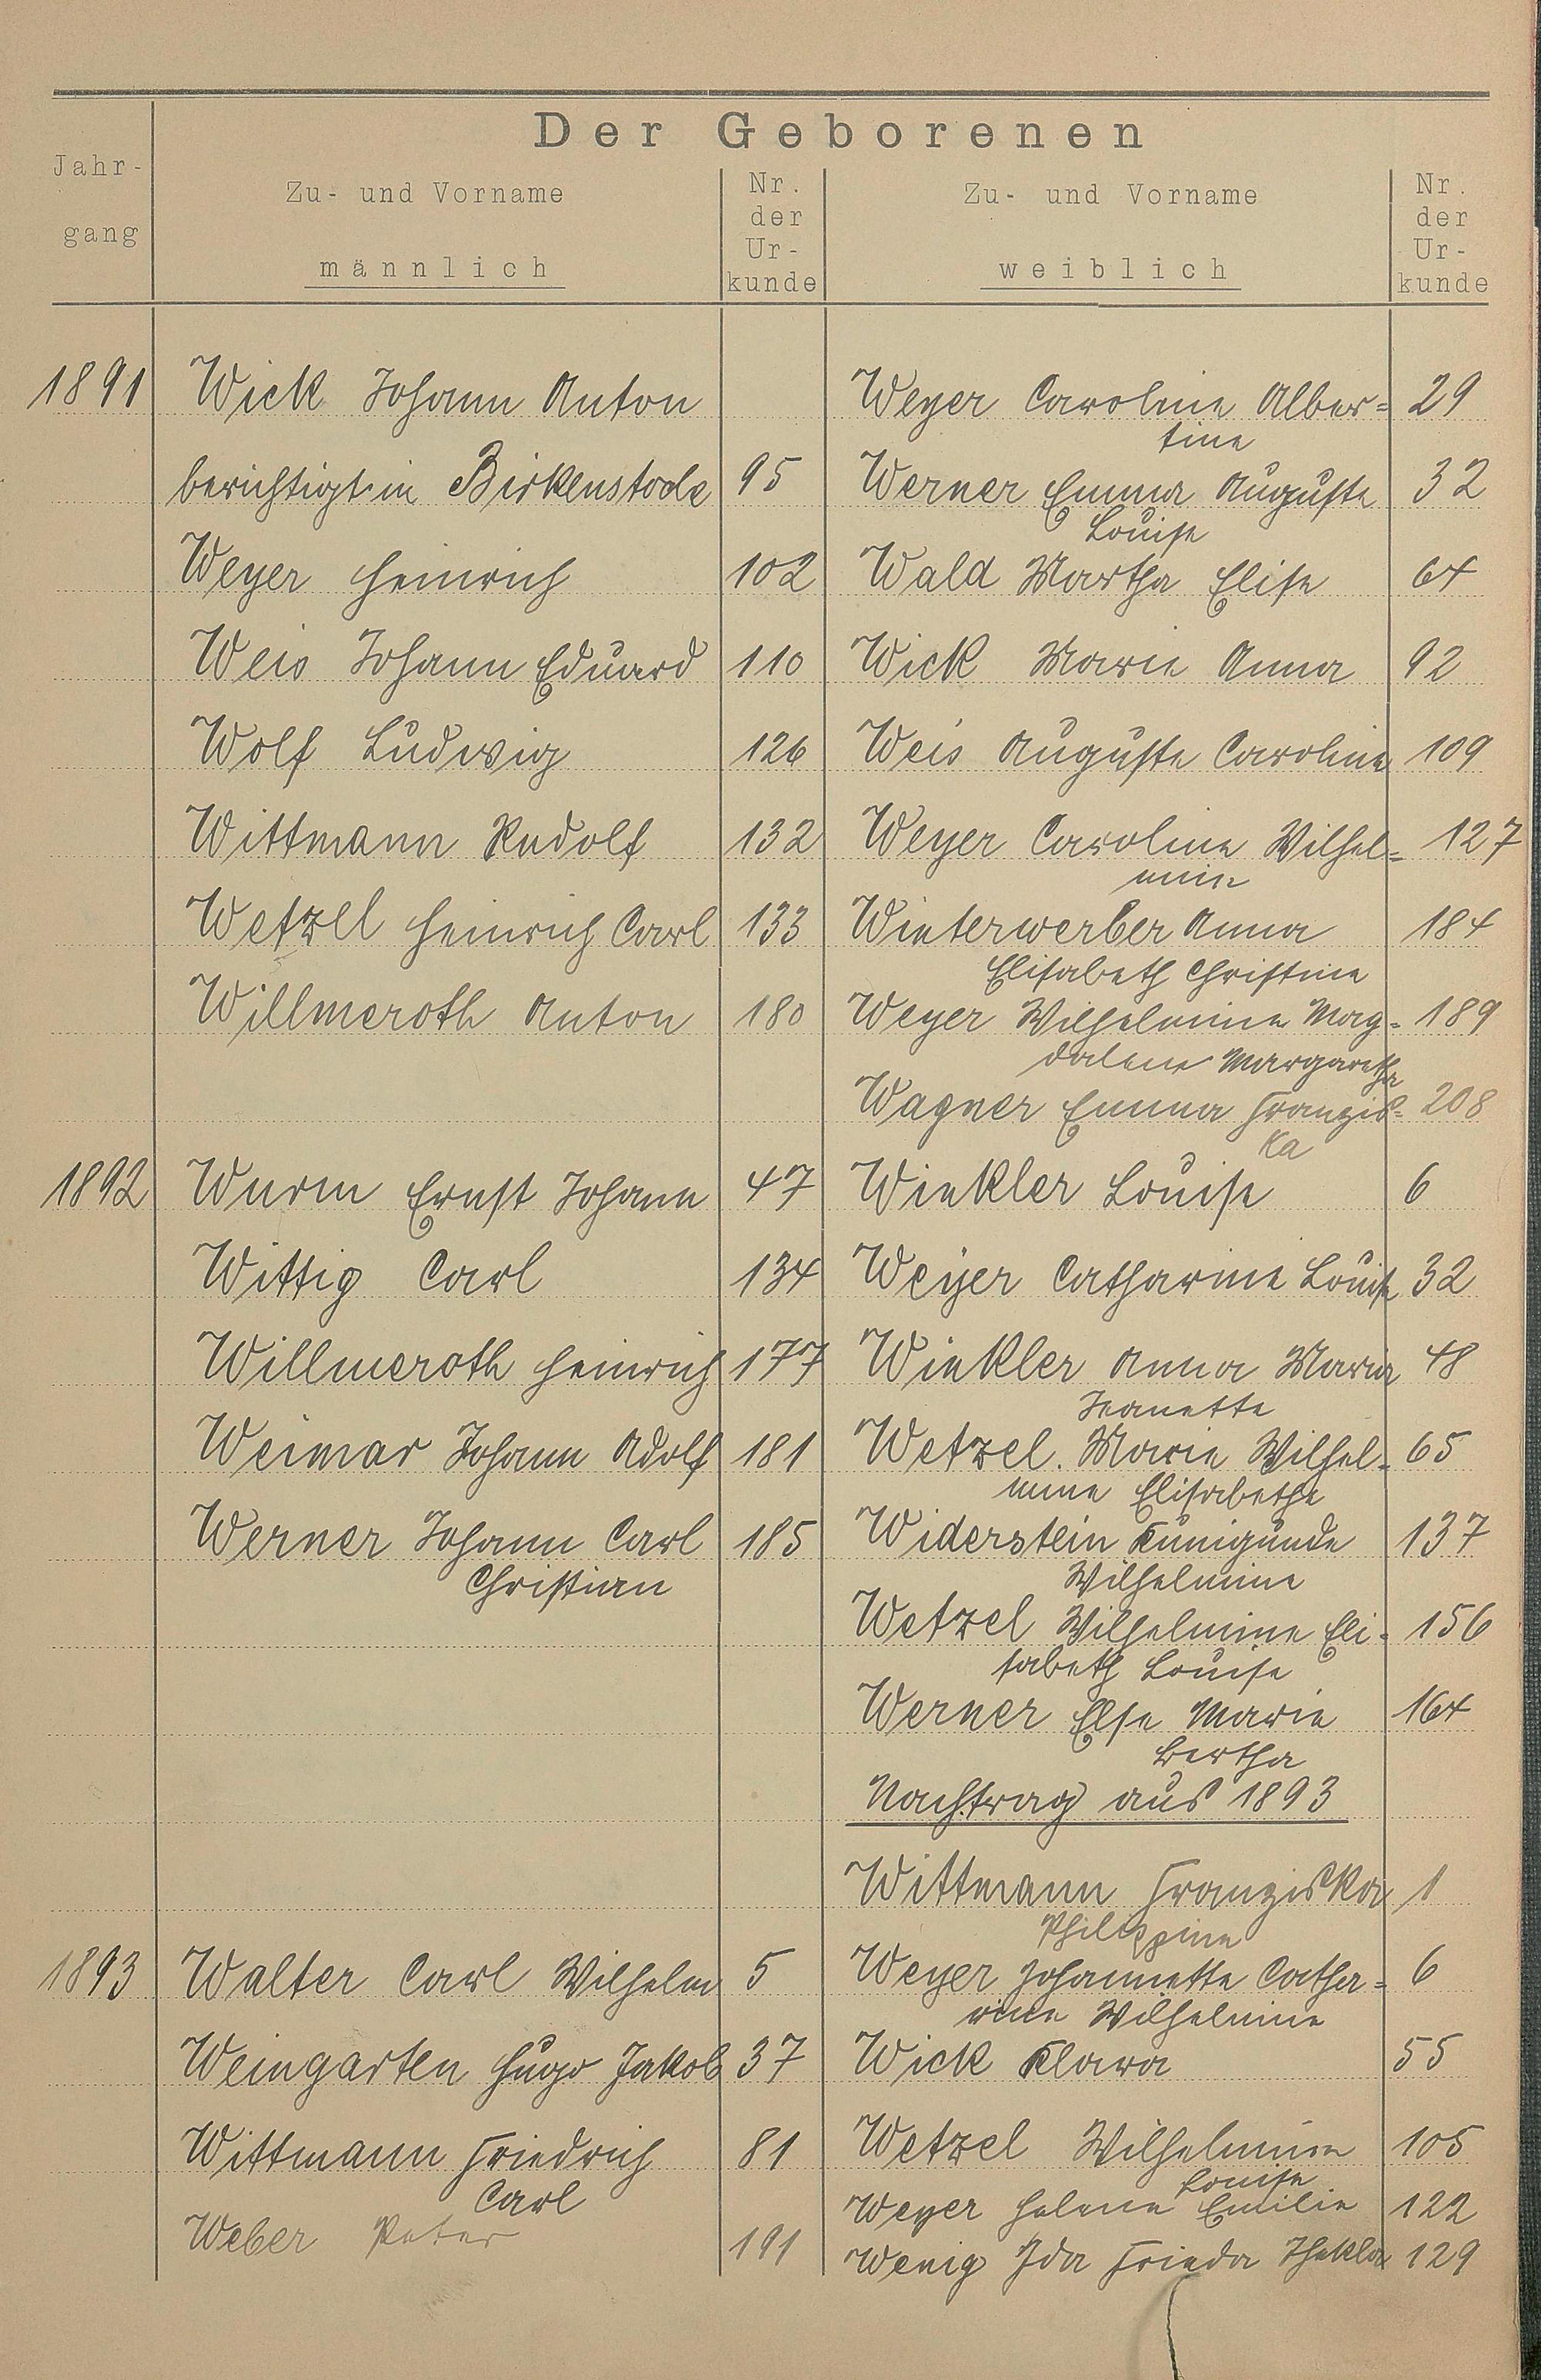 Der Geborenen
Jahr-
gang
Zu- und Vorname
männlich
Nr.
der
Ur-
kunde
Zu- und Vorname
weiblich
Nr.
der
Ur-
kunde
1891 Wick Johann Anton Weyer Caroline Alber= 29
tine
berichtigt in Birkenstock 95 Werner Emma Auguste 32
Louise
Weyer Heinrich 102 Wald Martha Elise 64
Weis Johann Eduard 110 Wick Marie Anna 92
Wolf Ludwig 126 Weis Auguste Caroline 109
Wittmann Rudolf 132 Weyer Caroline Wilhel= 127
mine
Wetzell Heinrich Carl 133 Winterwerber Anna 184
Elisabeth Christine
Willmeroth Anton 180 Weyer Wilhelmine Mag= 189
dalene Margaretha
Wagner Emma Franzis= 208
ka
1892 Wurm Ernst Johann 47 Winkler Louise 6
Wittig Carl 134 Weyer Catharine Louise 32
Willmeroth Heinrich 177 Winkler Anna Maria 48
Jeanette
Weimar Johann Adolf 181 Wetzel. Marie Wilhel= 65
mine Elisabethe
Werner Johann Carl 185 Widerstein Kunigunde 137
Christian Wilhelmine
Wetzel Wilhelmine Eli= 156
sabeth Louise
Werner Else Marie 164
Bertha
Nachtrag aus 1893
Wittmann Franziska 1
Philippine
1893 Walter Carl Wilhelm 5 Weyer Johannette Catha= 6
rine Wilhelmine
Weingarten Hugo Jakob 37 Wick Klara 55
Wittmann Friedrich 81 Wetzel Wilhelmine 105
Carl Louise
Weyer Helene Emilie 122
Weber Peter 191 Wenig Ida Frieda Thekla 129